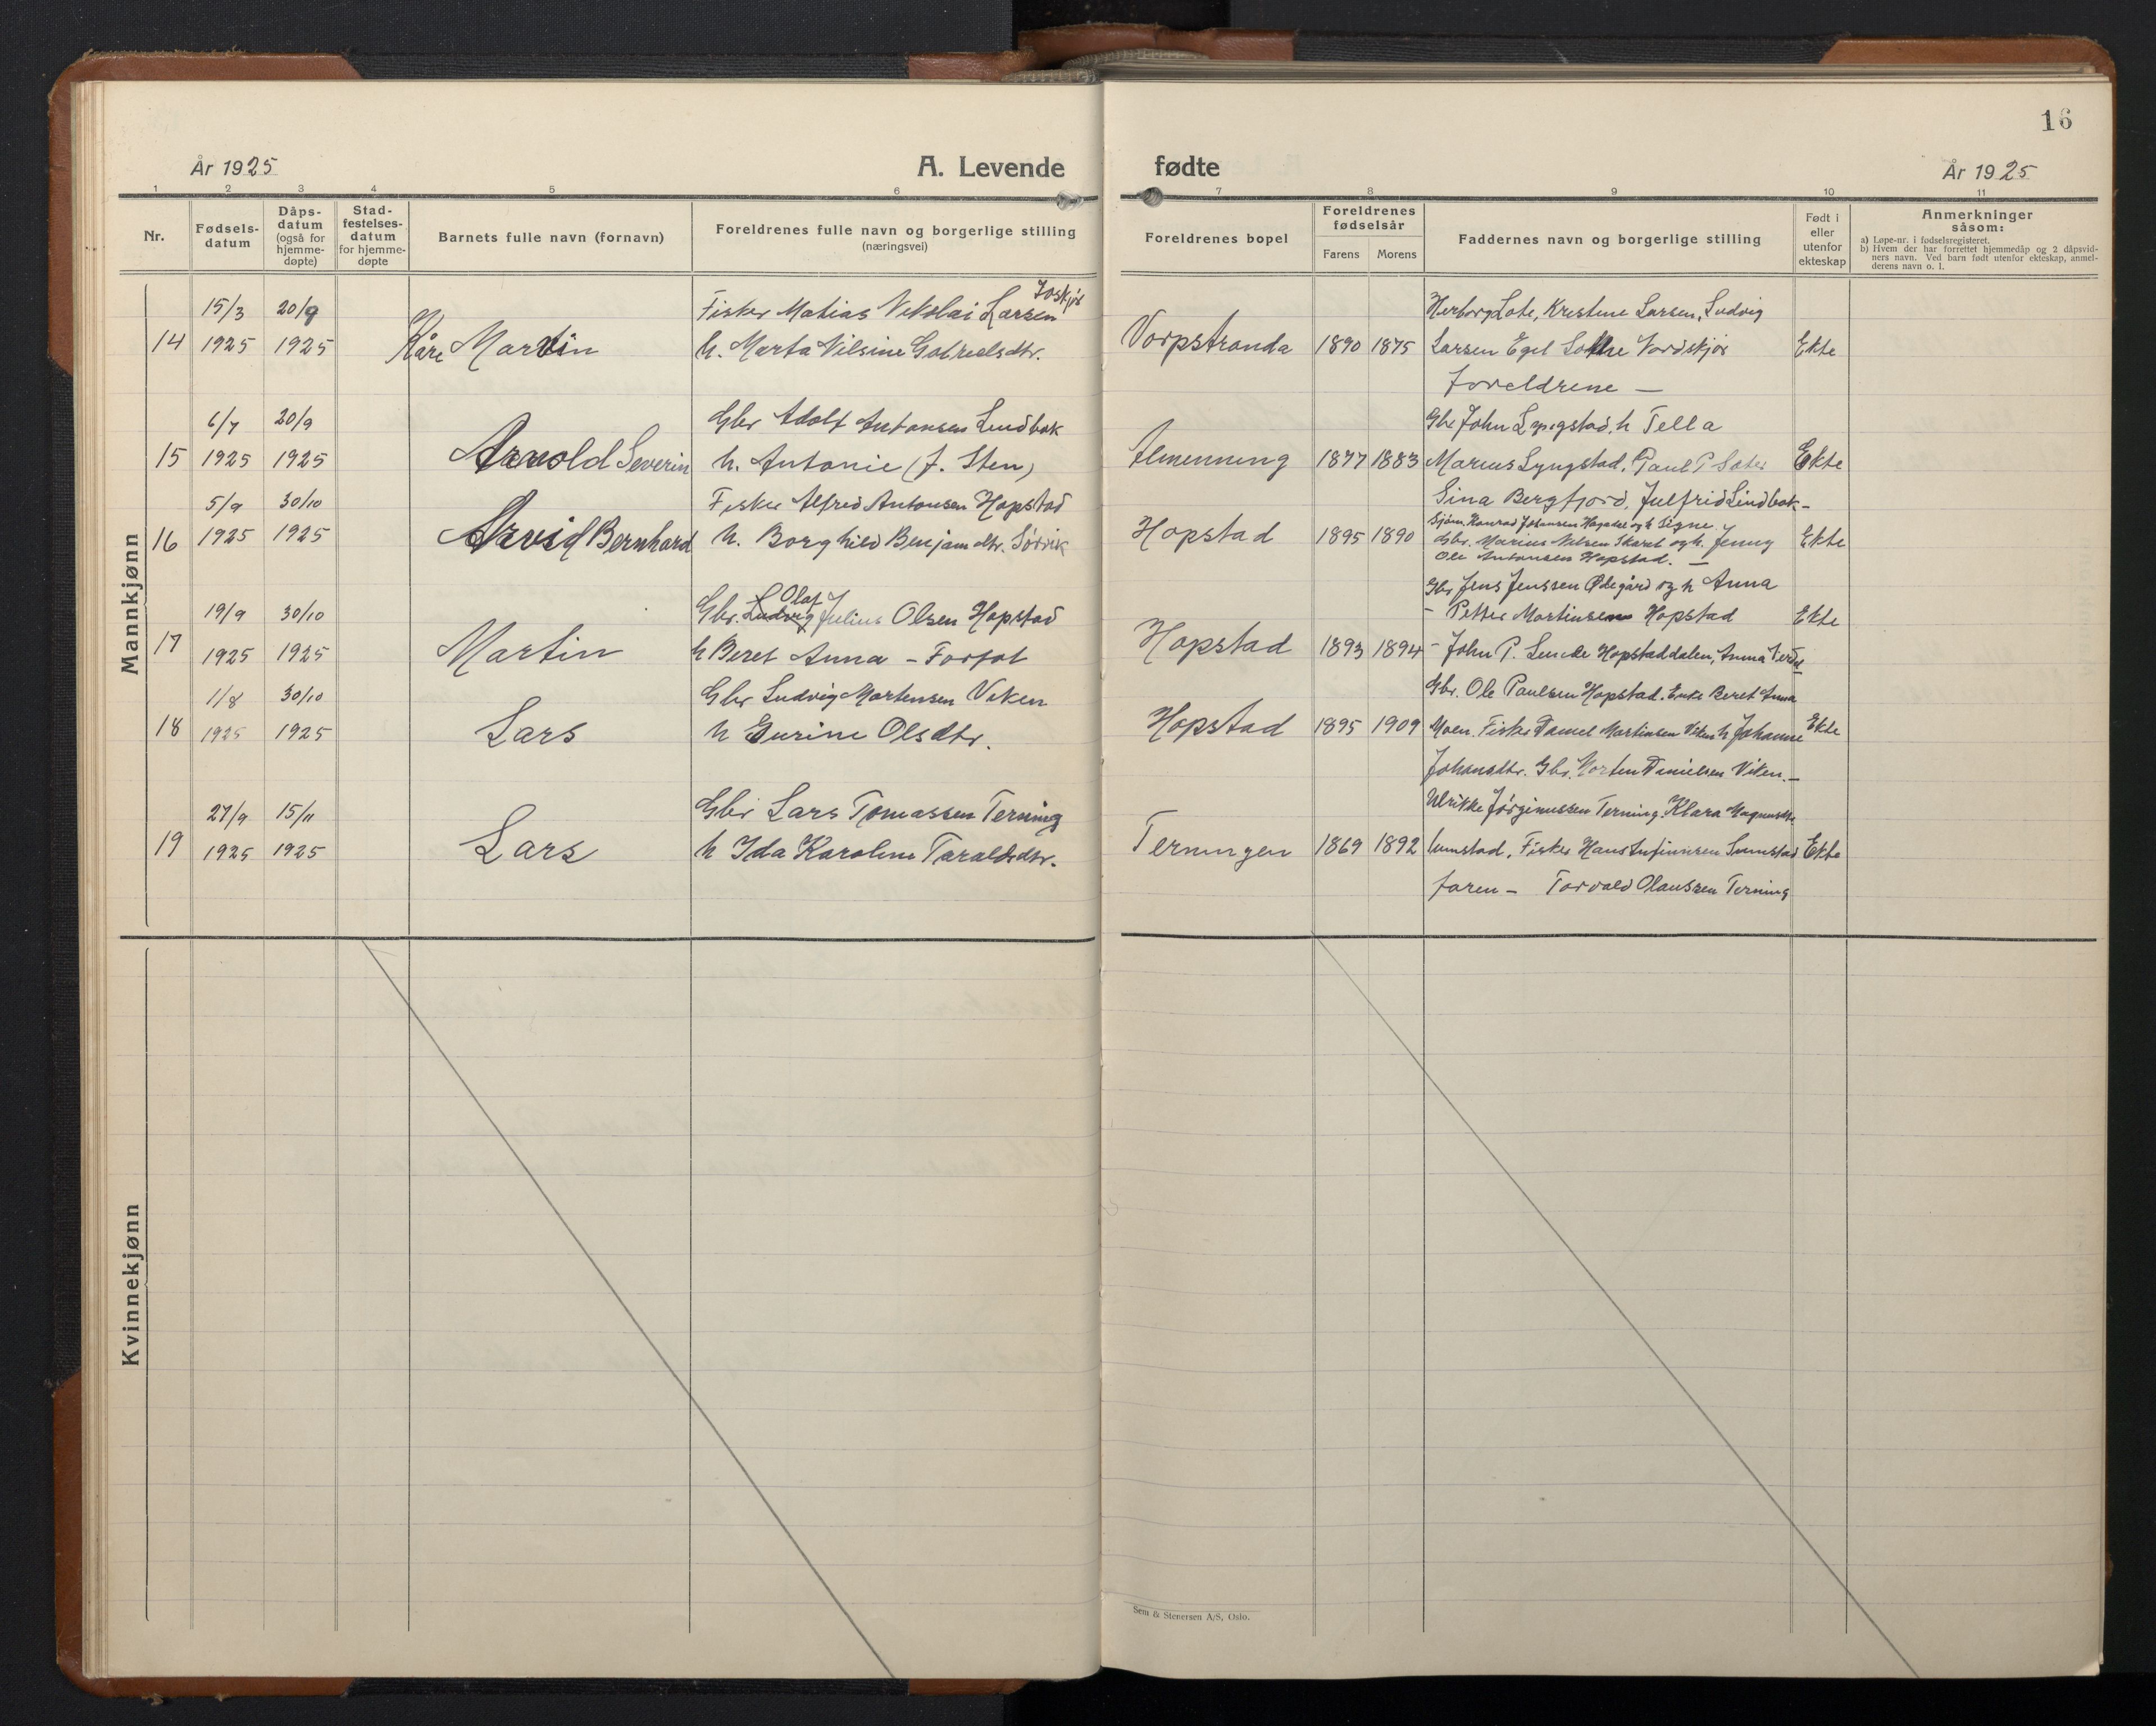 16
År 1925
A. Levende
fødte
År 1925
1 2 3 4 5 6 7 8 9 10 11
Nr.
Fødsels-
datum
Dåps-
datum
(også for
hjemme-
døpte)
Stad-
festelses-
datum
for hjemme-
døpte
Barnets fulle navn (fornavn)
Foreldrenes fulle navn og borgerlige stilling
(næringsvei)
Foreldrenes bopel
Foreldrenes
fødselsår
Farens Morens
Faddernes navn og borgerlige stilling
Født i
eller
utenfor
ekteskap
Anmerkninger
såsom:
a) Løpe-nr. i fødselsregisteret.
b) Hvem der har forrettet hjemmedåp og 2 dåpsvid-
ners navn. Ved barn født utenfor ekteskap, anmel-
derens navn o. l.
Mannkjønn
14
15/3
1925
20/9
1925
Kåre Marvin
Fisker Matias Nikolai Larsen
h. Marta Nilsine Gabrielsdtr.
Vorpstranda
1890 1875
Herborg Lote, Kristine Larsen, Ludvig
Larsen Egil
Foreldrene —
Ekte
15
6/7
1925
20/9
1925
Arnold Severin
Gbr Adolf Antonsen Lindbak
h. Antonie (f. Sten)
Almenning
1877 1883
Gbr John Lyngstad, h Tella
Marius Lyngstad. Paul P.
Sina Bergfjord, Julfrid Lindbak —
Ekte
16
5/9
1925
30/10
1925
Arvid Bernhard
Fisker Alfred Antonsen Hopstad
h. Borghild Benjamdtr. Sørvik
Hopstad
1895 1890
Sjøm. Konrad Johansen og h Signe.
Gbr. Marius Nilsen Skaret og h. Jenny
Ole Antonsen Hopstad. —
Ekte
17
19/9
1925
30/10
1925
Martin
Olaf
Gbr. Ludvig Julius Olsen Hopstad
h Beret Anna – Forfot
Hopstad
1893 1894
Gbr Jens Jenssen Ødegård og h Anna
– Petter Martinsen Hopstad
– John P. Hopstaddalen, Anna
Ekte
18
1/8
1925
30/10
1925
Lars
Gbr Ludvig Mortensen Viken
h Gurine Olsdtr.
Hopstad
1895 1909
Gbr. Ole Paulsen Hopstad. Enke Beret Anna
Moen. Fisker Daniel Martinsen Viken h Johanne
Johansdtr. Gbr. Morten Danielsen Viken. —
Ekte
19
27/9
1925
15/11
1925
Lars
Gbr Lars Tomassen Terning
h Ida Karoline Taraldsdtr.
Terningen
1869 1892
Ulrikke Jørginussen Terning. Klara Magnusdtr
Sumstad. Fisker Hans Sumstad
faren — Torvald Olaussen Terning
Ekte
Kvinnekjønn
Sem & Stenersen A/S, Oslo.